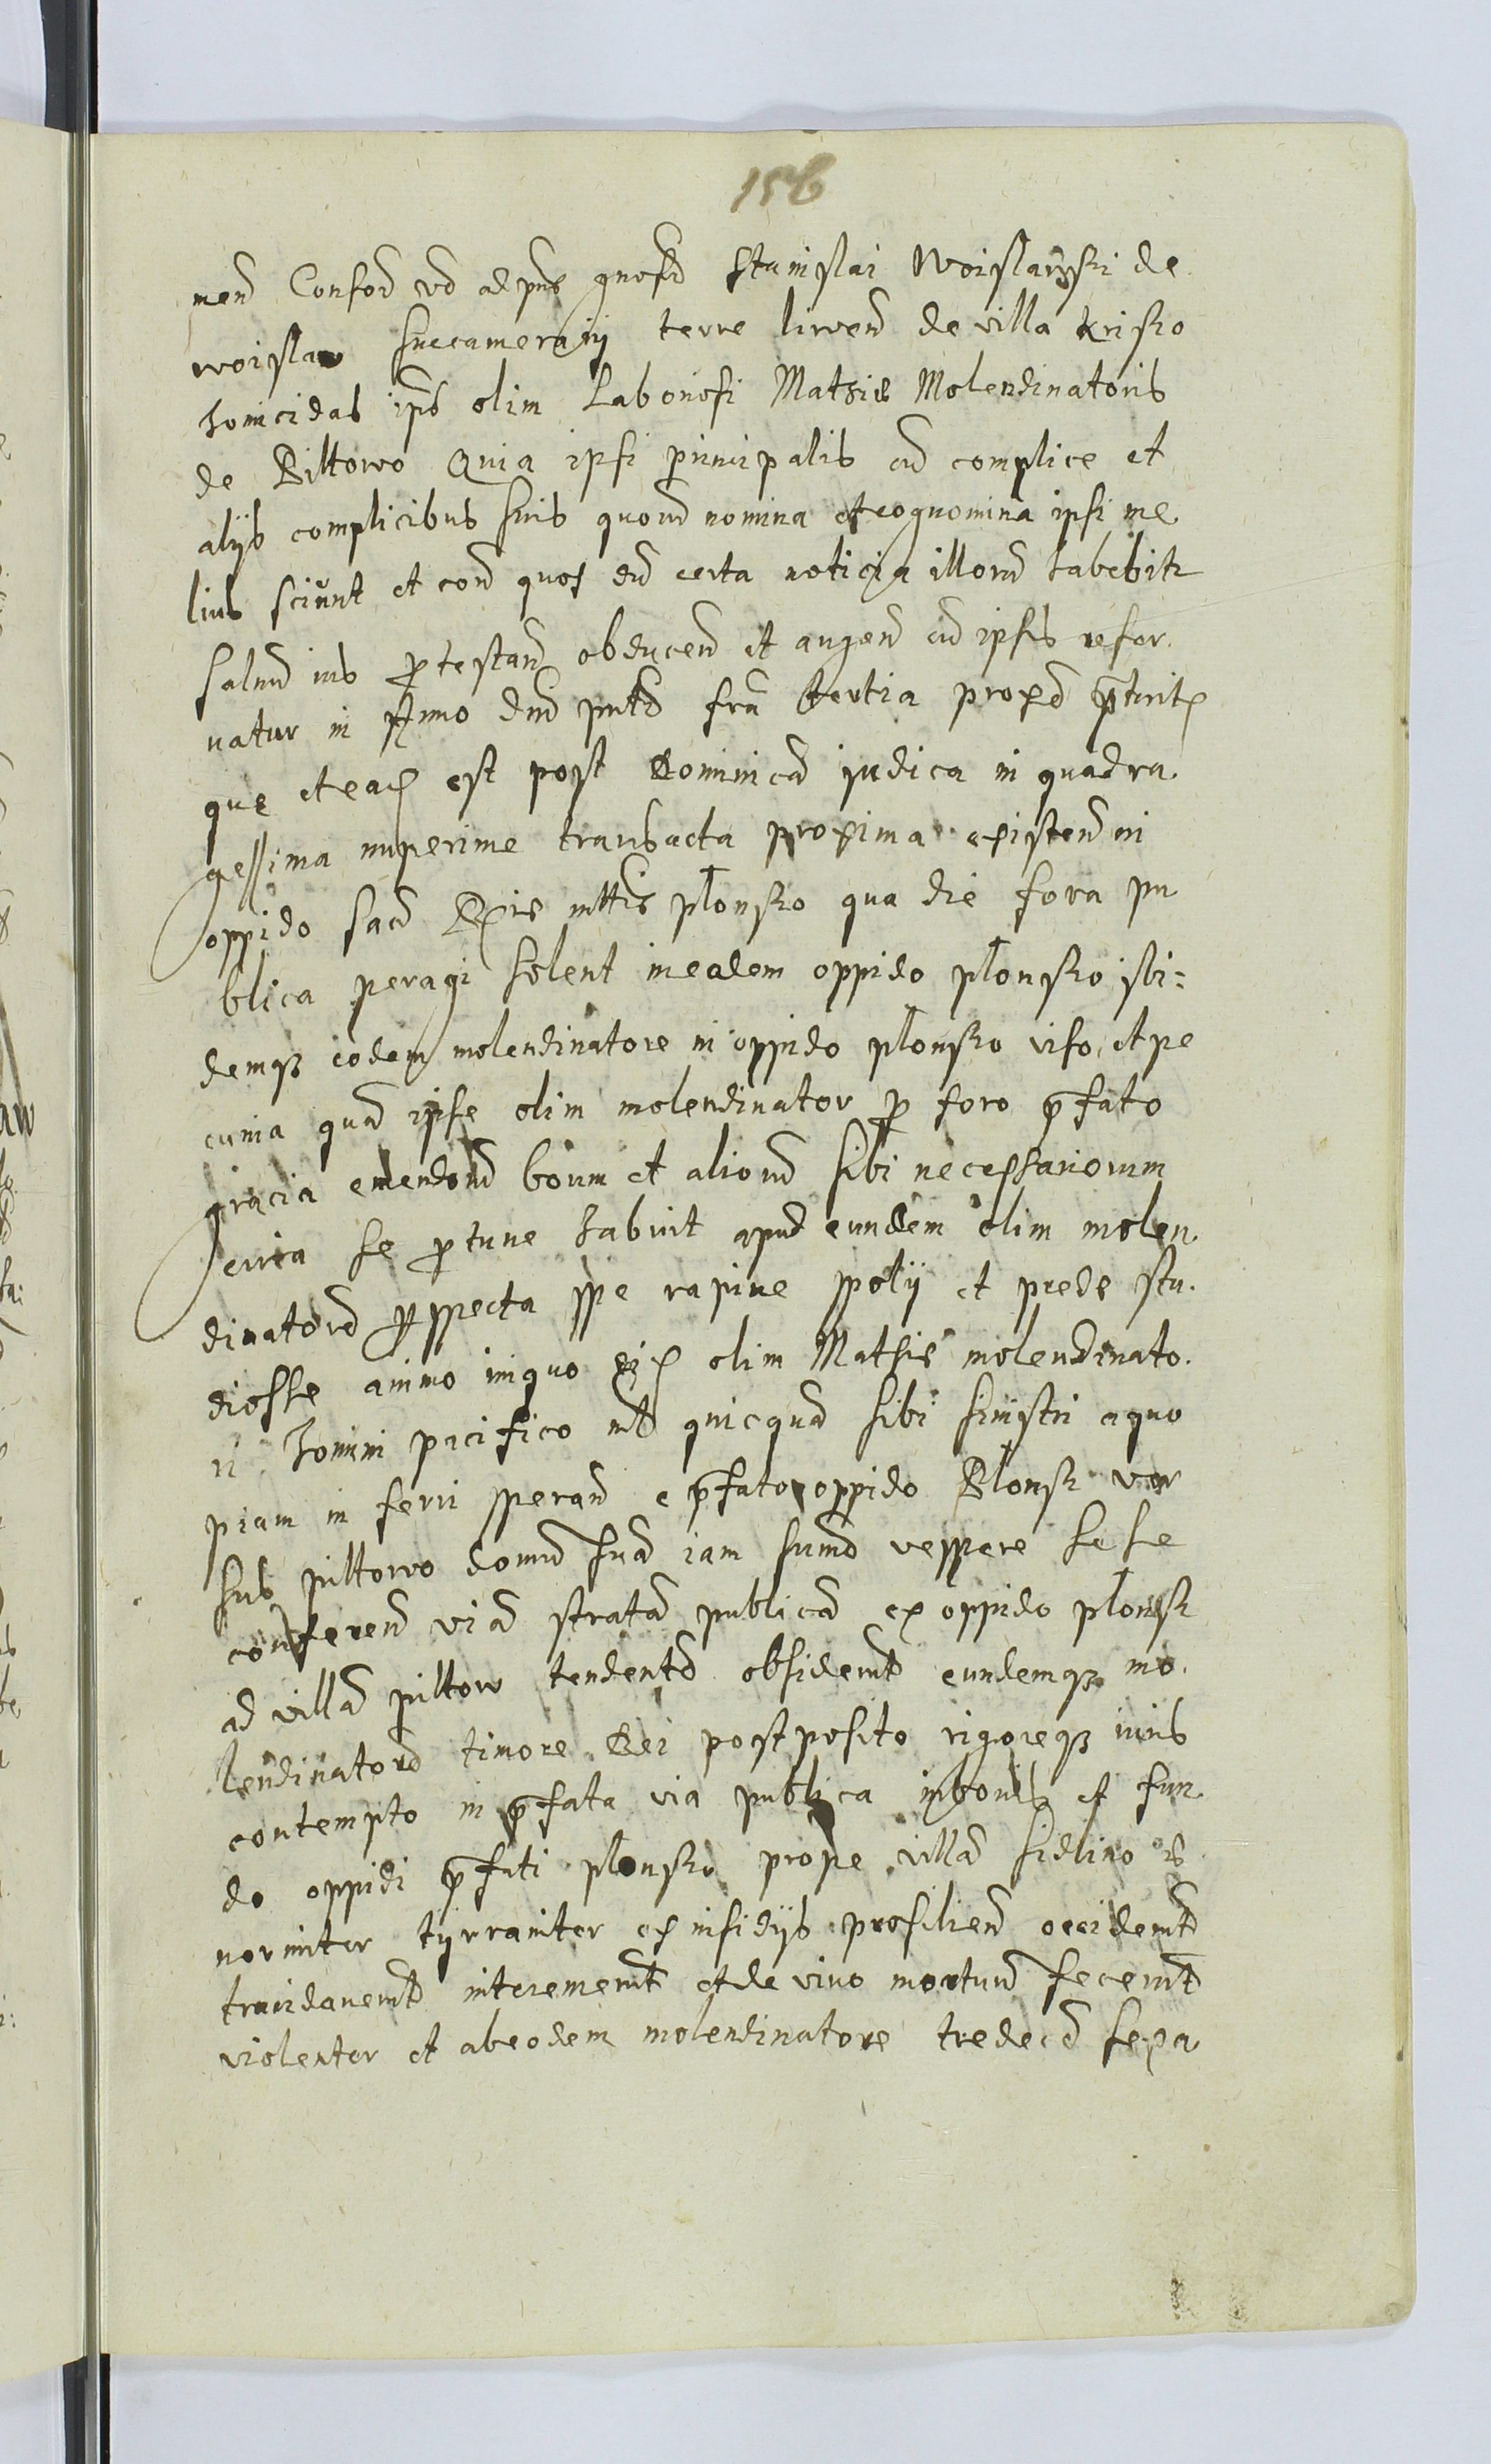 156
men Consor vd ad pns gnosd Stanislai Woislawski de
woislaw succamerarij terre liwen de villa krisko
homicidas ips olim Laboriosi Mathie Molendinatoris
de Biltowo Quia ipsi principalis cu complice et
alijs complicibus suis quoru nomina et cognomina ipsi me
lius sciunt et con quos du certa noticia illoru habebitr
saluu ius protestan obducen et augen cu ipsis refor
uatur in Anno dni feria tertia proxe preterit
que etea est post Dominica iudica in quadra
gessima nuperime transacta proxima existen in
oppido Sacre plonsko qua die fora pu
blica peragi solent in eadem oppido plonsko ibi=
demq eodem molendinatore in oppido plonsko viso et pe
cunia qua ipse olim molendinator pro foro prefato
gracia emendoru boum et alioru sibi necessariorum
circa se pro tunc habuit apud eundem olim molen
dinatore perspecta spe rapine spolij et prede stu
diosse animo iniquo olim Mathie molendinato
ri homini pacifico quicqua sibi sinistri a quo
piam in ferri speran e prefato oppido Plonsk ver
sus piltowo domu sua iam sumo vespere sese
conferen via strata publica ex oppido plonsk
ad villa piltow tendente obsiderut eundemq mo
lendinatore timore Dei postposito rigoreq iuris
contempto in prefata via publica in bonis et fun
do oppidi prefati plonsko prope villa Sidlino e
normiter tyrraniter ex insidijs prosilien occiderut
trucidauerut interemerut et de viuo mortuu fecerut
violenter et ab eodem molendinatore tredeci sexa